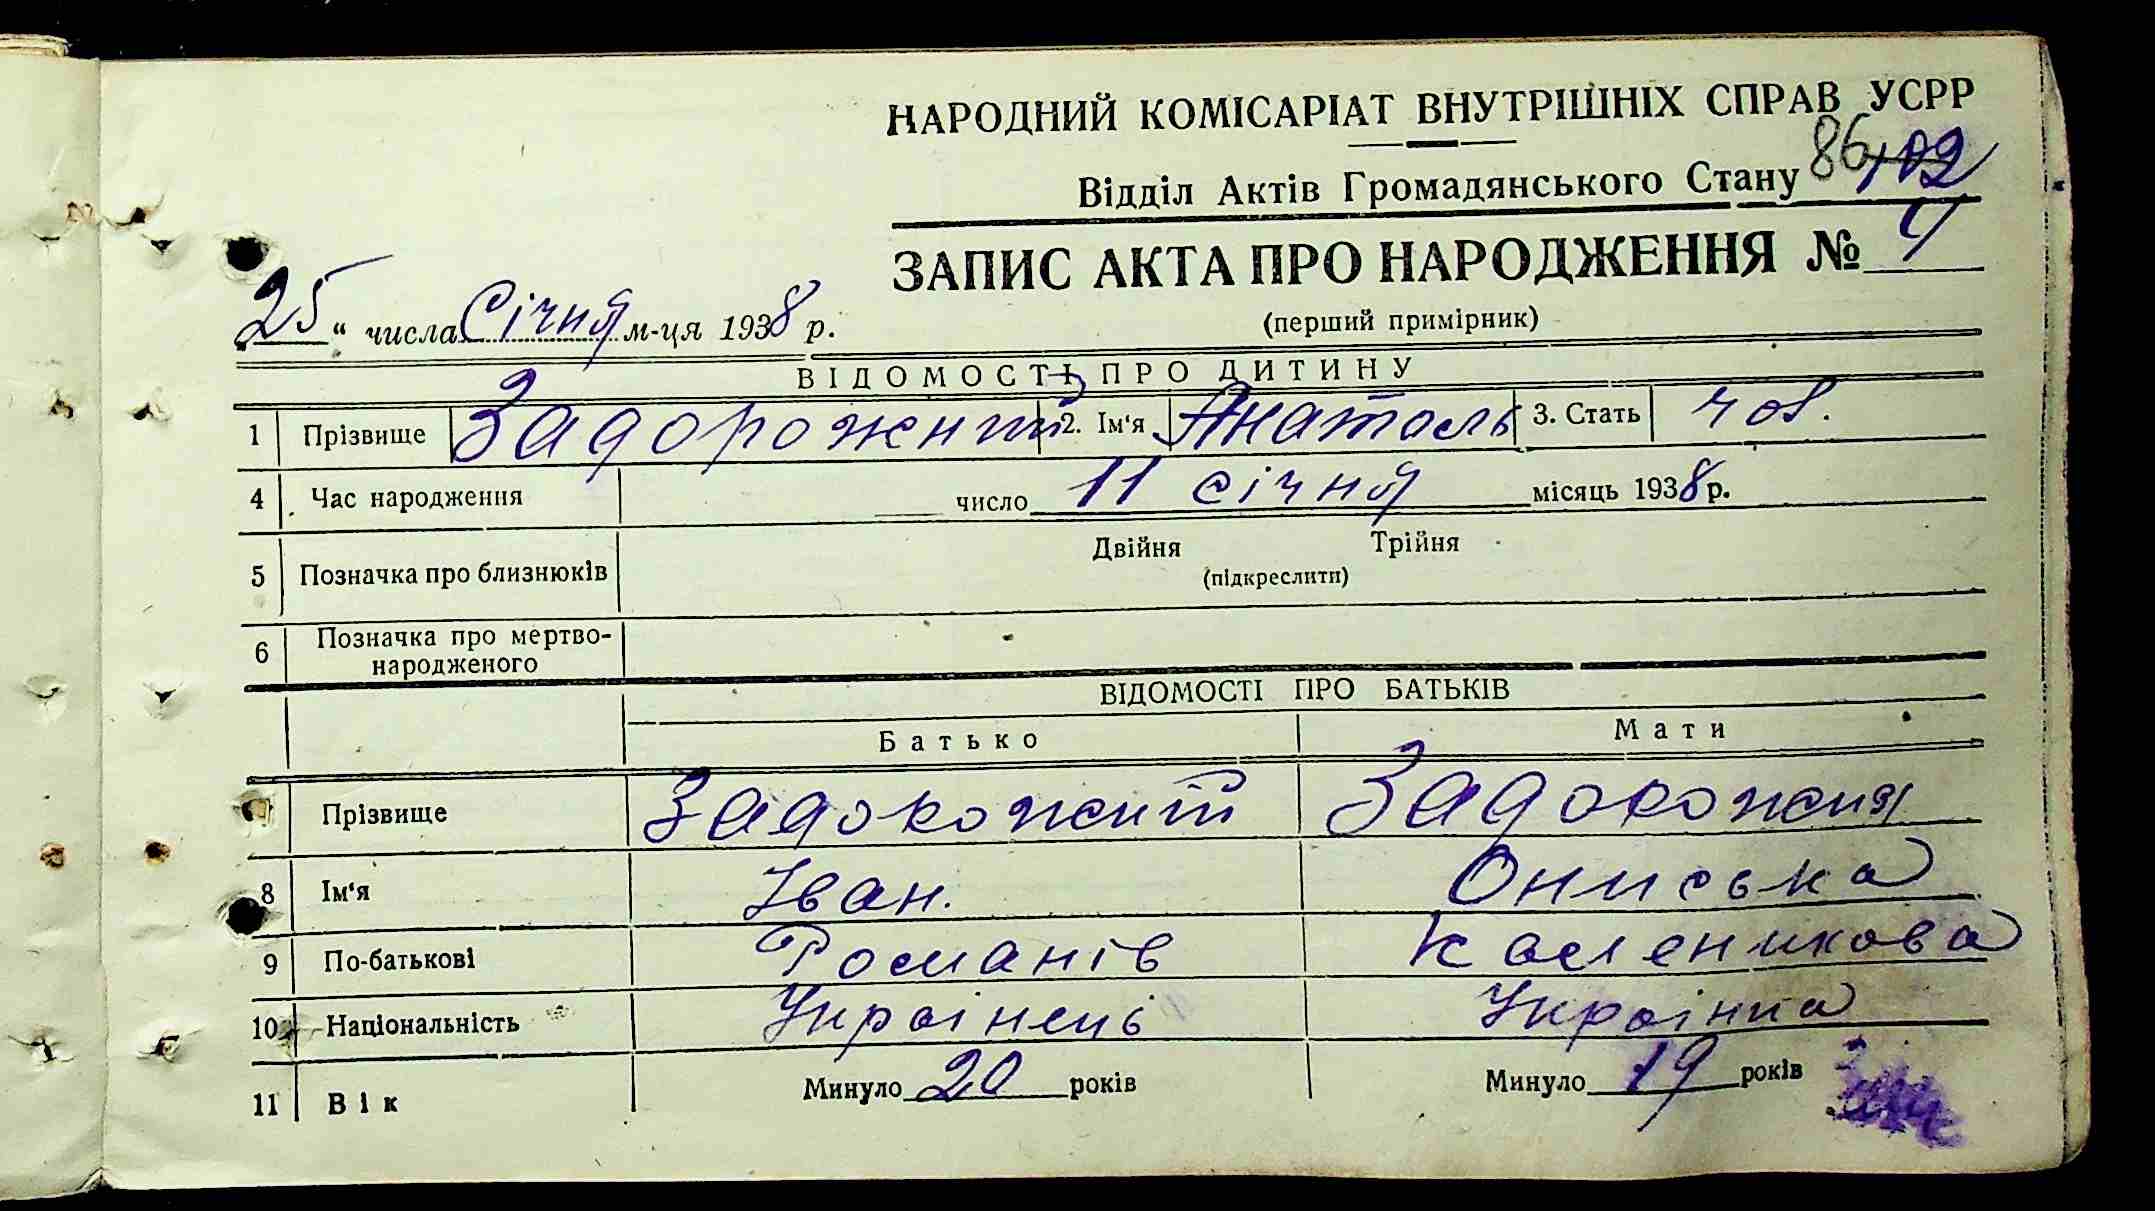 НАРОДНИЙ КОМІСАРІАТ ВНУТРІШНІХ СПРАВ УСРР
86 102
Відділ Актів Громадянського Стану
ЗАПИС АКТА ПРО НАРОДЖЕННЯ № 4
„25“ числа Січня м-ця 1938 р.
(перший примірник)
ВІДОМОСТІ ПРО ДИТИНУ
1 Прізвище Задорожний 2. Ім‘я Анатоль 3. Стать чол.
4 Час народження число 11 січня місяць 1938 р.
5 Позначка про близнюків Двійня Трійня
(підкреслити)
6 Позначка про мертво-
народженого
ВІДОМОСТІ ПРО БАТЬКІВ
Батько Мати
7 Прізвище Задорожний Задорожня
8 Ім‘я Іван. Ониська
9 По-батькові Романів Каленикова
10 Національність Українець Українка
11 Вік Минуло 20 років Минуло 19 років